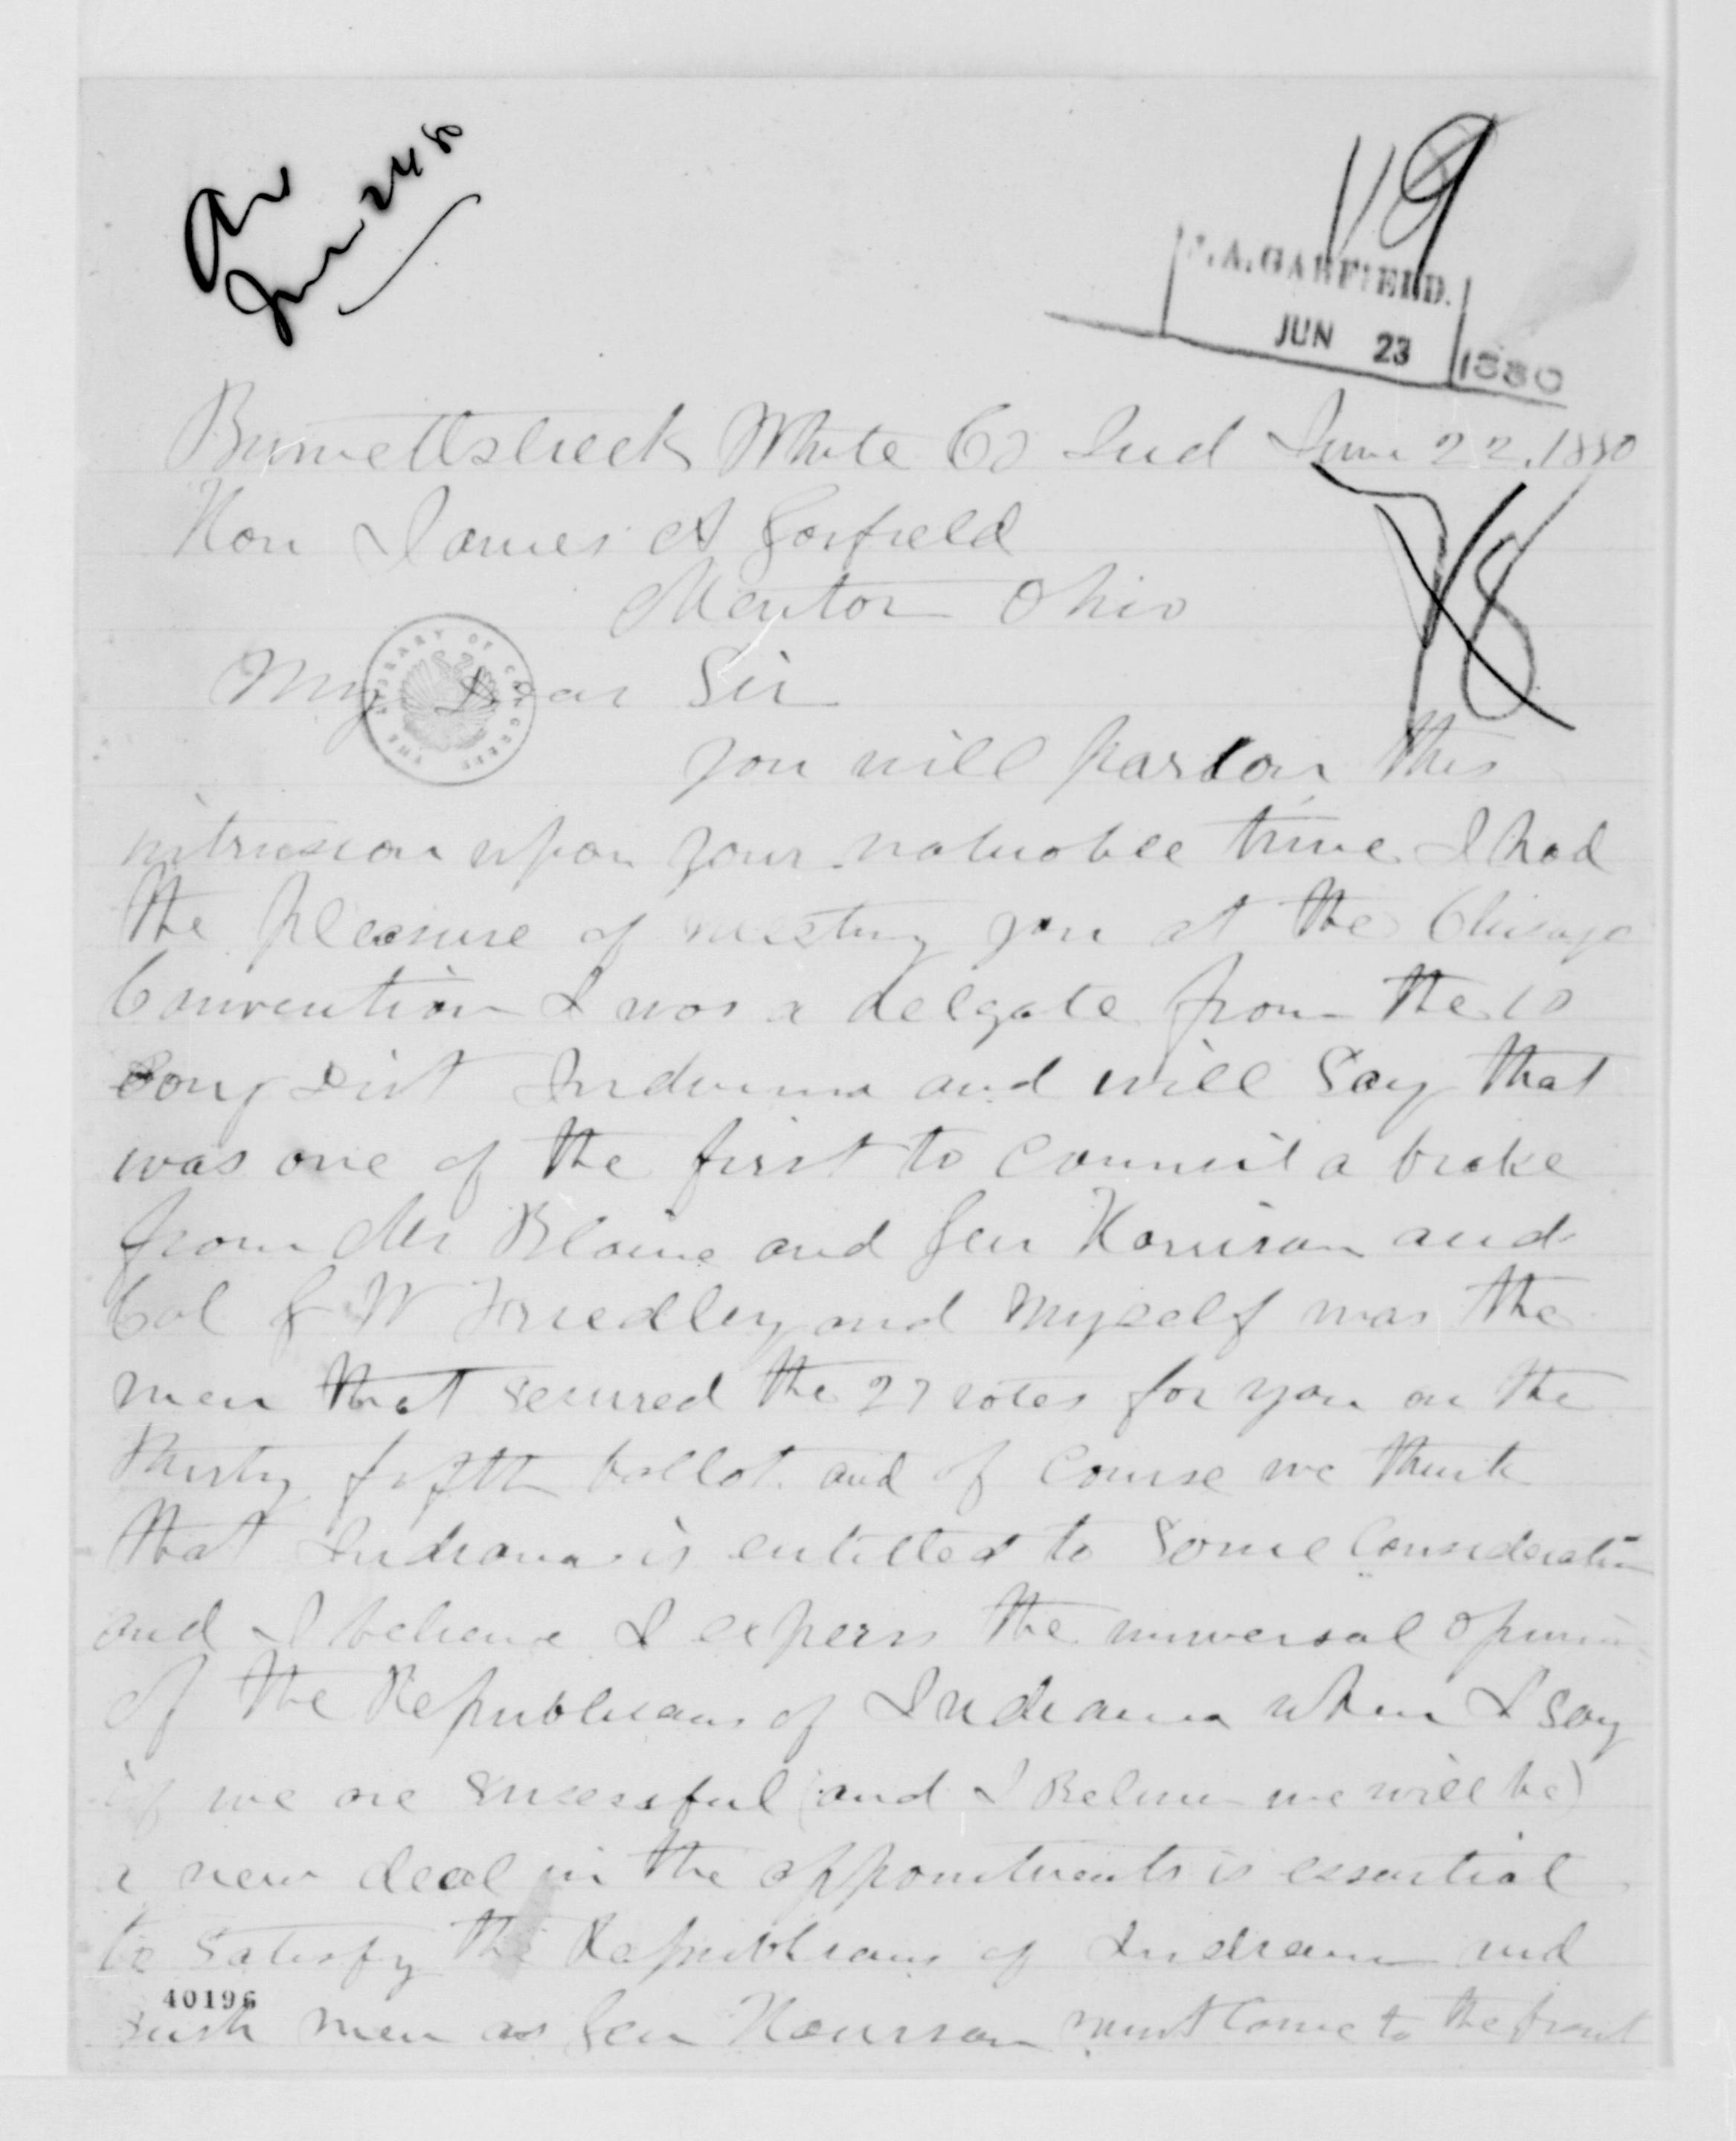 Ans
Jun 24 80
119
J.A.GARFIELD.
JUN 23 1880
Burnettscreek White Co Ind June 22, 1880
Hon James A Garfield
Mentor Ohio
78
My Dear Sir
THE LIBRARY OF CONGRESS
you will pardon this
intrusion upon your valuable time I had
the pleasure of meeting you at the Chicago
Convention I was a delgate from the 10
Cong Dist Indiana and will Say that
was one of the first to council a brake
from Mr Blaine and Gen Harrison and
Col G W Friedley and myself was the
men that secured the 27 votes for you on the
thirty fifth ballot. and of Course we think
that Indiana is entitled to Some Consideration
and I believe I expess the universal opinion
of the Republicans of Indiana when I Say
if we are Sucessful (and I Believe we will be)
a new deal in the appointments is essential
to Satisfy the Republicans of Indiana and
40196
Such men as Gen Harrison must Come to the front